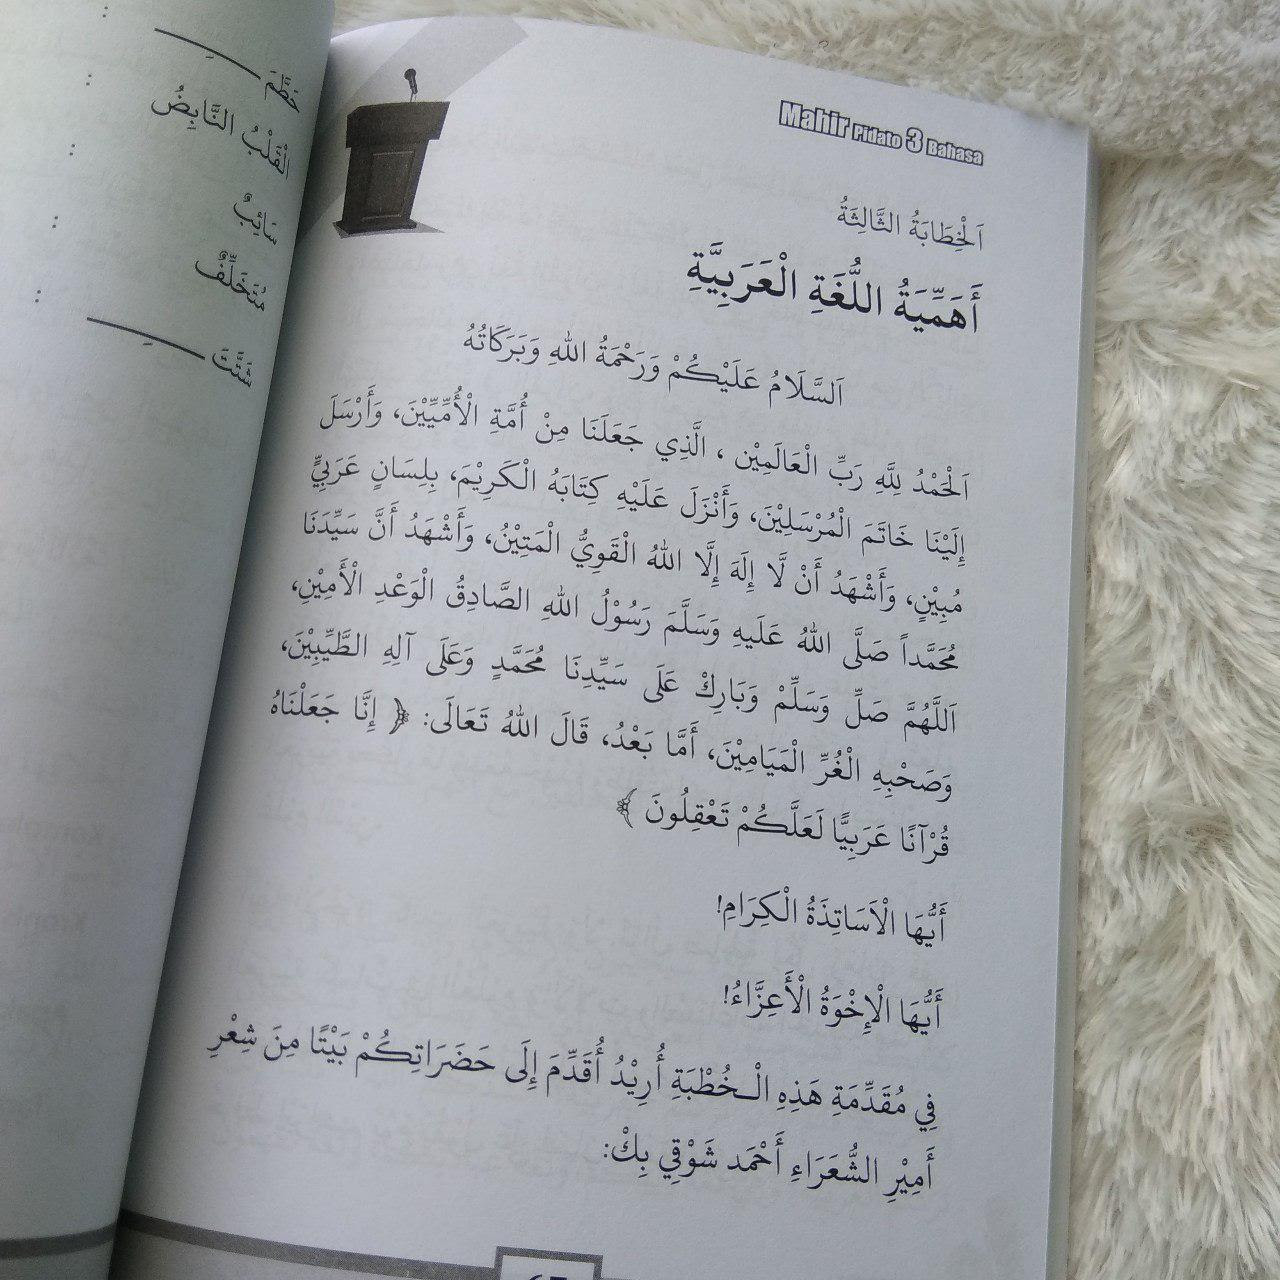 حَطَّمَ ــِـ :
الْقَلْبُ النَّابِضُ :
سَائِبٌ :
مُتَخَلِّفٌ :
شَتَّتَ ــِـ :
Mahir Pidato 3 Bahasa
اَلْخِطَابَةُ الثَّالِثَةُ
أَهَمِّيَةُ اللُّغَةِ الْعَرَبِيَّةِ
اَلسَّلَامُ عَلَيْكُمْ وَرَحْمَةُ اللهِ وَبَرَكَاتُهُ
اَلْحَمْدُ لِلَّهِ رَبِّ الْعَالَمِيْن ، الَّذِي جَعَلَنَا مِنْ أُمَّةِ الْأُمِّيِّيْنَ، وَأَرْسَلَ
إِلَيْنَا خَاتَمَ الْمُرْسَلِيْنَ، وَأَنْزَلَ عَلَيْهِ كِتَابَهُ الْكَرِيْمَ، بِلِسَانٍ عَرَبِيٍّ
مُبِيْنٍ، وَأَشْهَدُ أَنْ لَّا إِلَهَ إِلَّا اللهُ الْقَوِيُّ الْمَتِيْنُ، وَأَشْهَدُ أَنَّ سَيِّدَنَا
مُحَمَّداً صَلَّى اللهُ عَلَيهِ وَسَلَّمَ رَسُوْلُ اللهِ الصَّادِقُ الْوَعْدِ الْأَمِيْنِ،
اَللَّهُمَّ صَلِّ وَسَلِّمْ وَبَارِكْ عَلَى سَيِّدِنَا مُحَمَّدٍ وَعَلَى آلِهِ الطَّيِّبِيْنَ،
وَصَحْبِهِ الْغُرِّ الْمَيَامِيْنَ، أَمَّا بَعْدُ، قَالَ اللهُ تَعَالَى: ﴿ إِنَّا جَعَلْنَاهُ
قُرْآنًا عَرَبِيًّا لَعَلَّكُمْ تَعْقِلُونَ ﴾
أَيُّهَا الْاَسَاتِذَةُ الْكِرَامِ!
أَيُّهَا الْإِخْوَةُ الْأَعِزَّاءُ!
فِي مُقَدِّمَةِ هَذِهِ الْـخُطْبَةِ أُرِيْدُ أُقَدِّمَ إِلَى حَضَرَاتِكُمْ بَيْتًا مِنَ شِعْرِ
أَمِيْرِ الشُّعَرَاءِ أَحْمَد شَوْقِي بِكْ: